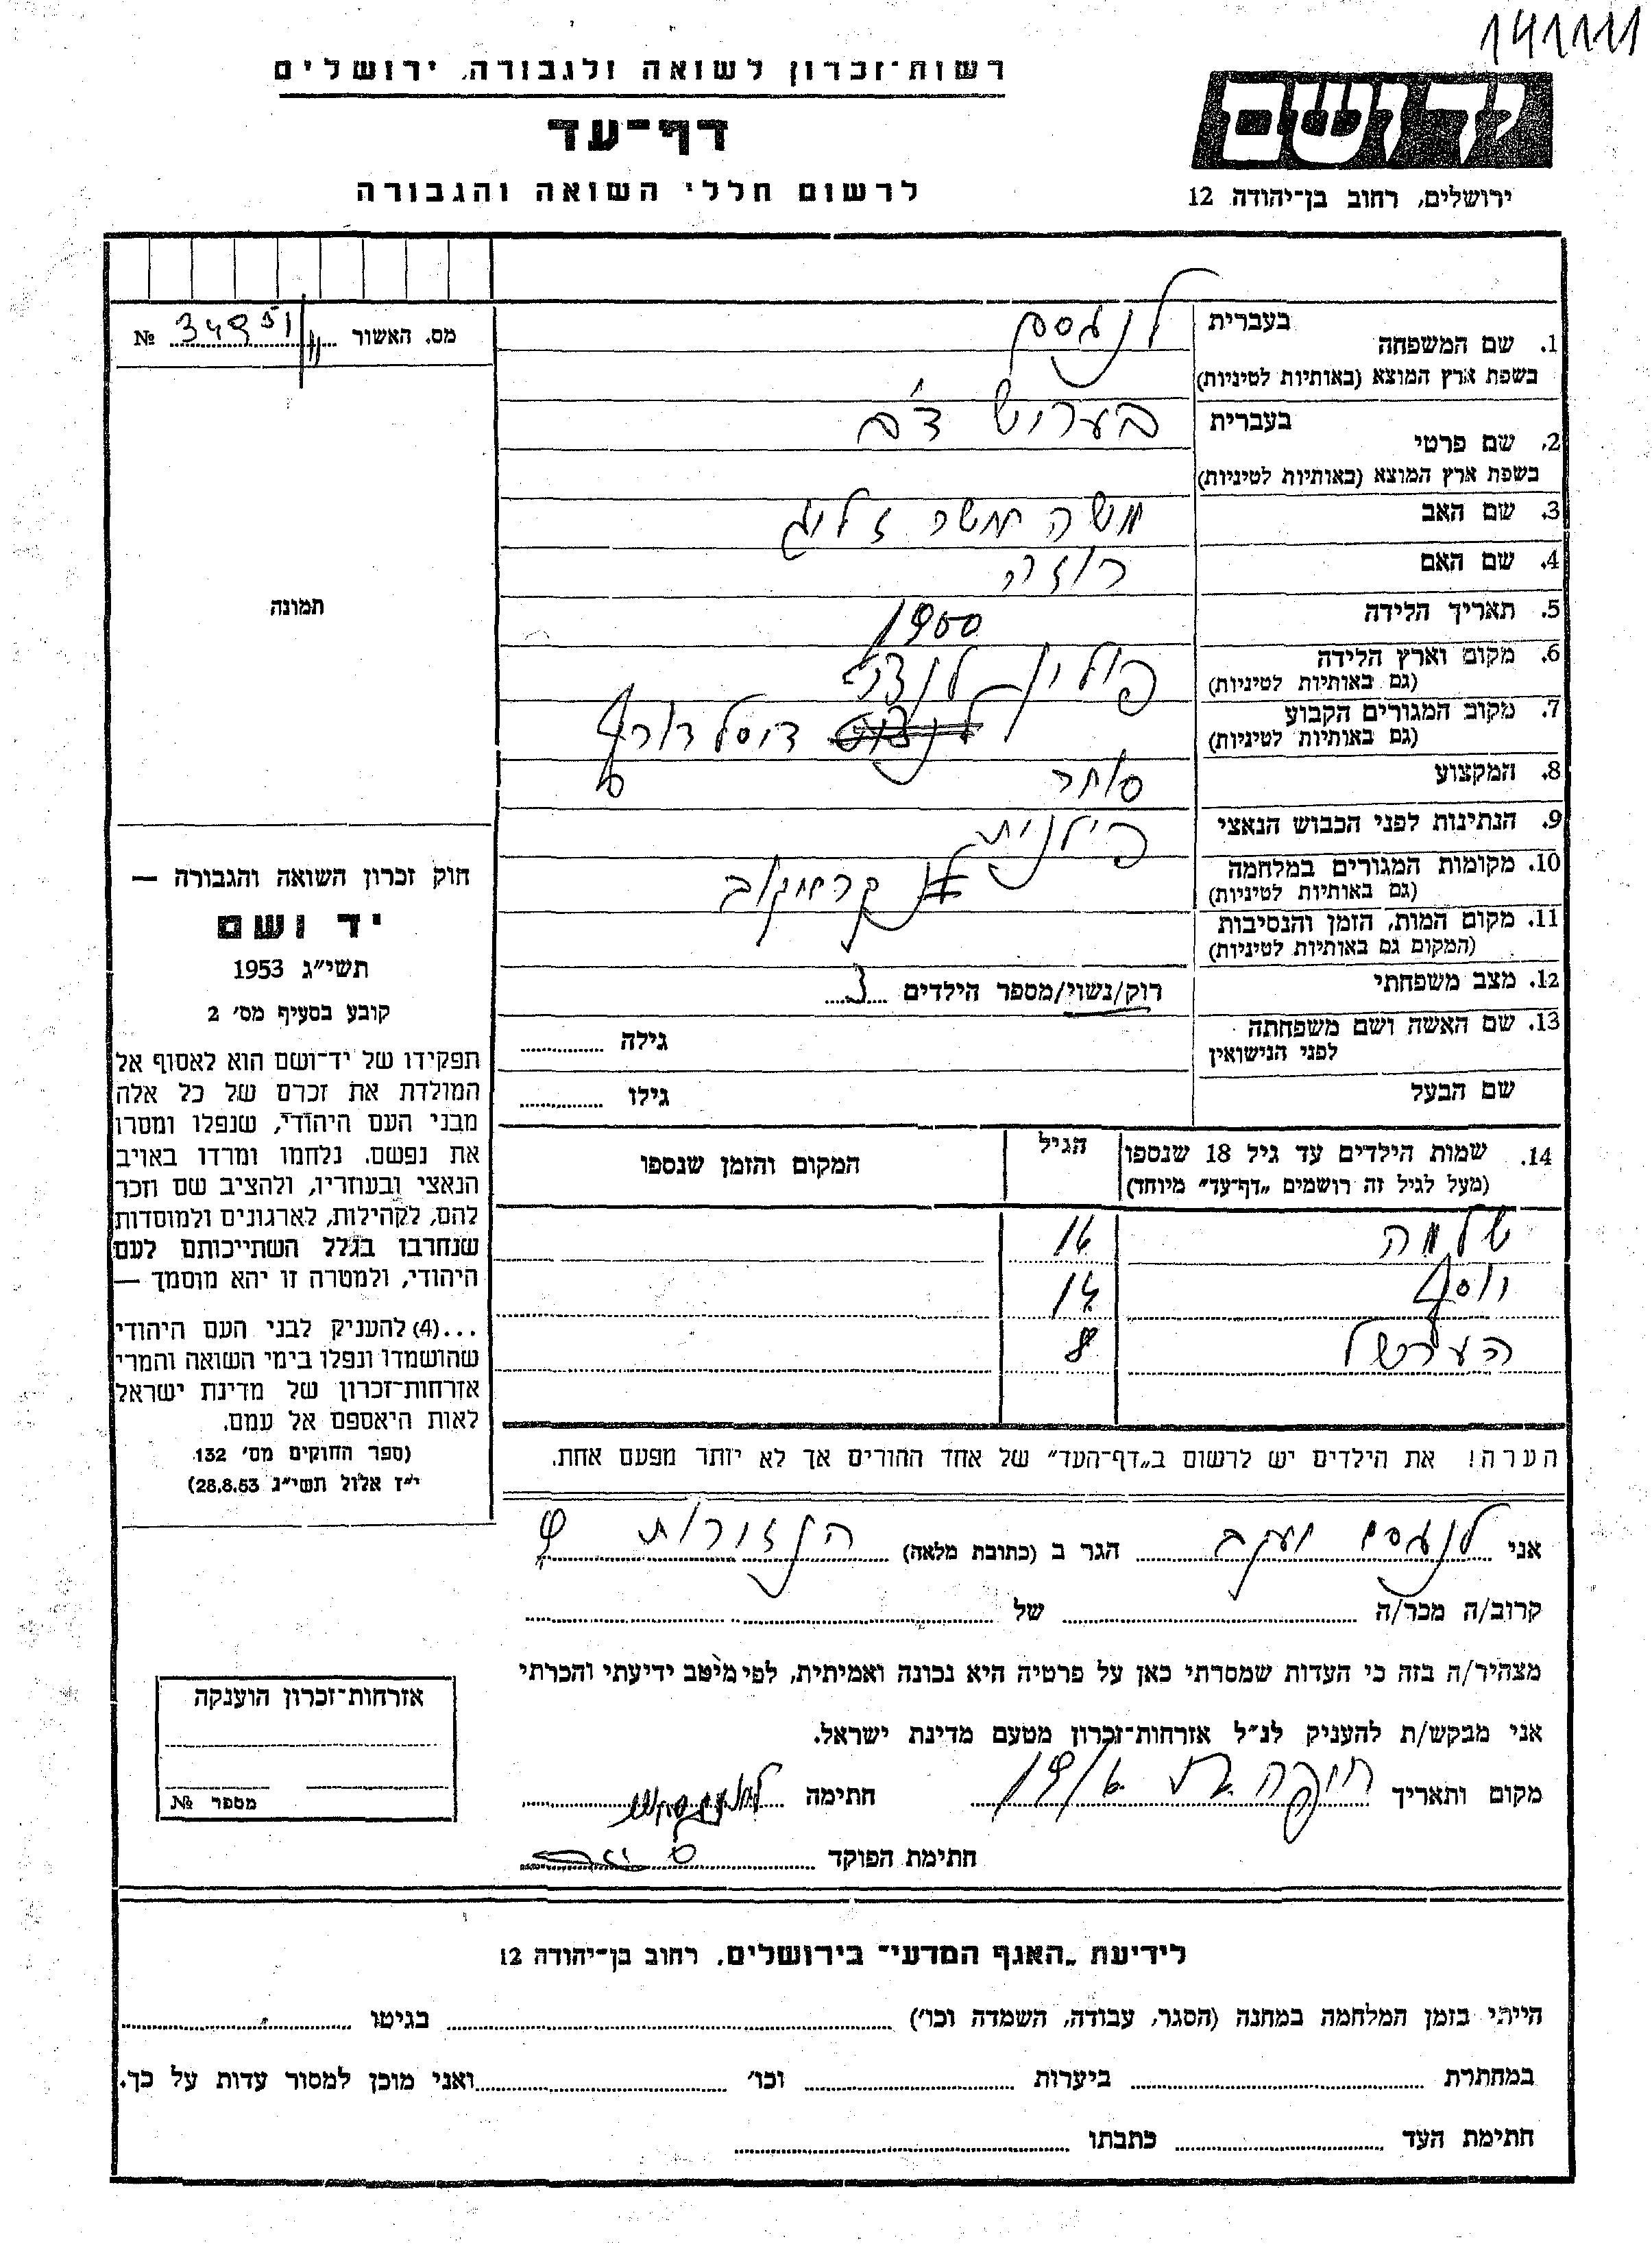 141111
רשות־זכרון לשואה ולגבורה, ירושלים
יד ושם
דף־עד
ירושלים, רחוב בן־יהודה 12
לרשום חללי השואה והגבורה
מס. האשור № 34951
1. שם המשפחה
בעברית
בשפת ארץ המוצא (באותיות לטיניות)
2. שם פרטי
בעברית בעריש
בשפת ארץ המוצא (באותיות לטיניות)
3. שם האב משה משה זליג
4. שם האם רוזה
5. תאריך הלידה 1900
6. מקום וארץ הלידה פולין
(גם באותיות לטיניות)
7. מקום המגורים הקבוע דיסלדורף
(גם באותיות לטיניות)
8. המקצוע סוחר
9. הנתינות לפני הכבוש הנאצי פולנית
10. מקומות המגורים במלחמה
(גם באותיות לטיניות)
11. מקום המות, הזמן והנסיבות
(המקום גם באותיות לטיניות)
12. מצב משפחתי רוק/נשוי/מספר הילדים 3
13. שם האשה ושם משפחתה
לפני הנישואין
גילה
שם הבעל
גילו
14. שמות הילדים עד גיל 18 שנספו
(מעל לגיל זה רושמים „דף־עד" מיוחד)
הגיל
המקום והזמן שנספו
שלמה 16
יוסף 14
הערשל 8
הערה! את הילדים יש לרשום ב„דף־העד" של אחד ההורים אך לא יותר מפעם אחת.
תמונה
חוק זכרון השואה והגבורה —
יד ושם
תשי"ג 1953
קובע בסעיף מס' 2
תפקידו של יד־ושם הוא לאסוף אל
המולדת את זכרם של כל אלה
מבני העם היהודי, שנפלו ומסרו
את נפשם, נלחמו ומרדו באויב
הנאצי ובעוזריו, ולהציב שם וזכר
להם, לקהילות, לארגונים ולמוסדות
שנחרבו בגלל השתייכותם לעם
היהודי, ולמטרה זו יהא מוסמך —
...(4) להעניק לבני העם היהודי
שהושמדו ונפלו בימי השואה והמרי
אזרחות־זכרון של מדינת ישראל
לאות היאספם אל עמם.
(ספר החוקים מס' 132
י"ז אלול תשי"ג 28.8.53)
אני יעקב הגר ב (כתובת מלאה)
קרוב/ה מכר/ה של
מצהיר/ה בזה כי העדות שמסרתי כאן על פרטיה היא נכונה ואמיתית, לפי מיטב ידיעתי והכרתי
אני מבקש/ת להעניק לנ"ל אזרחות־זכרון מטעם מדינת ישראל.
מקום ותאריך חיפה חתימה
חתימת הפוקד
אזרחות־זכרון הוענקה
מספר №
לידיעת „האגף המדעי" בירושלים, רחוב בן־יהודה 12
הייתי בזמן המלחמה במחנה (הסגר, עבודה, השמדה וכו') בגיטו
במחתרת ביערות וכו' ואני מוכן למסור עדות על כך.
חתימת העד כתבתו